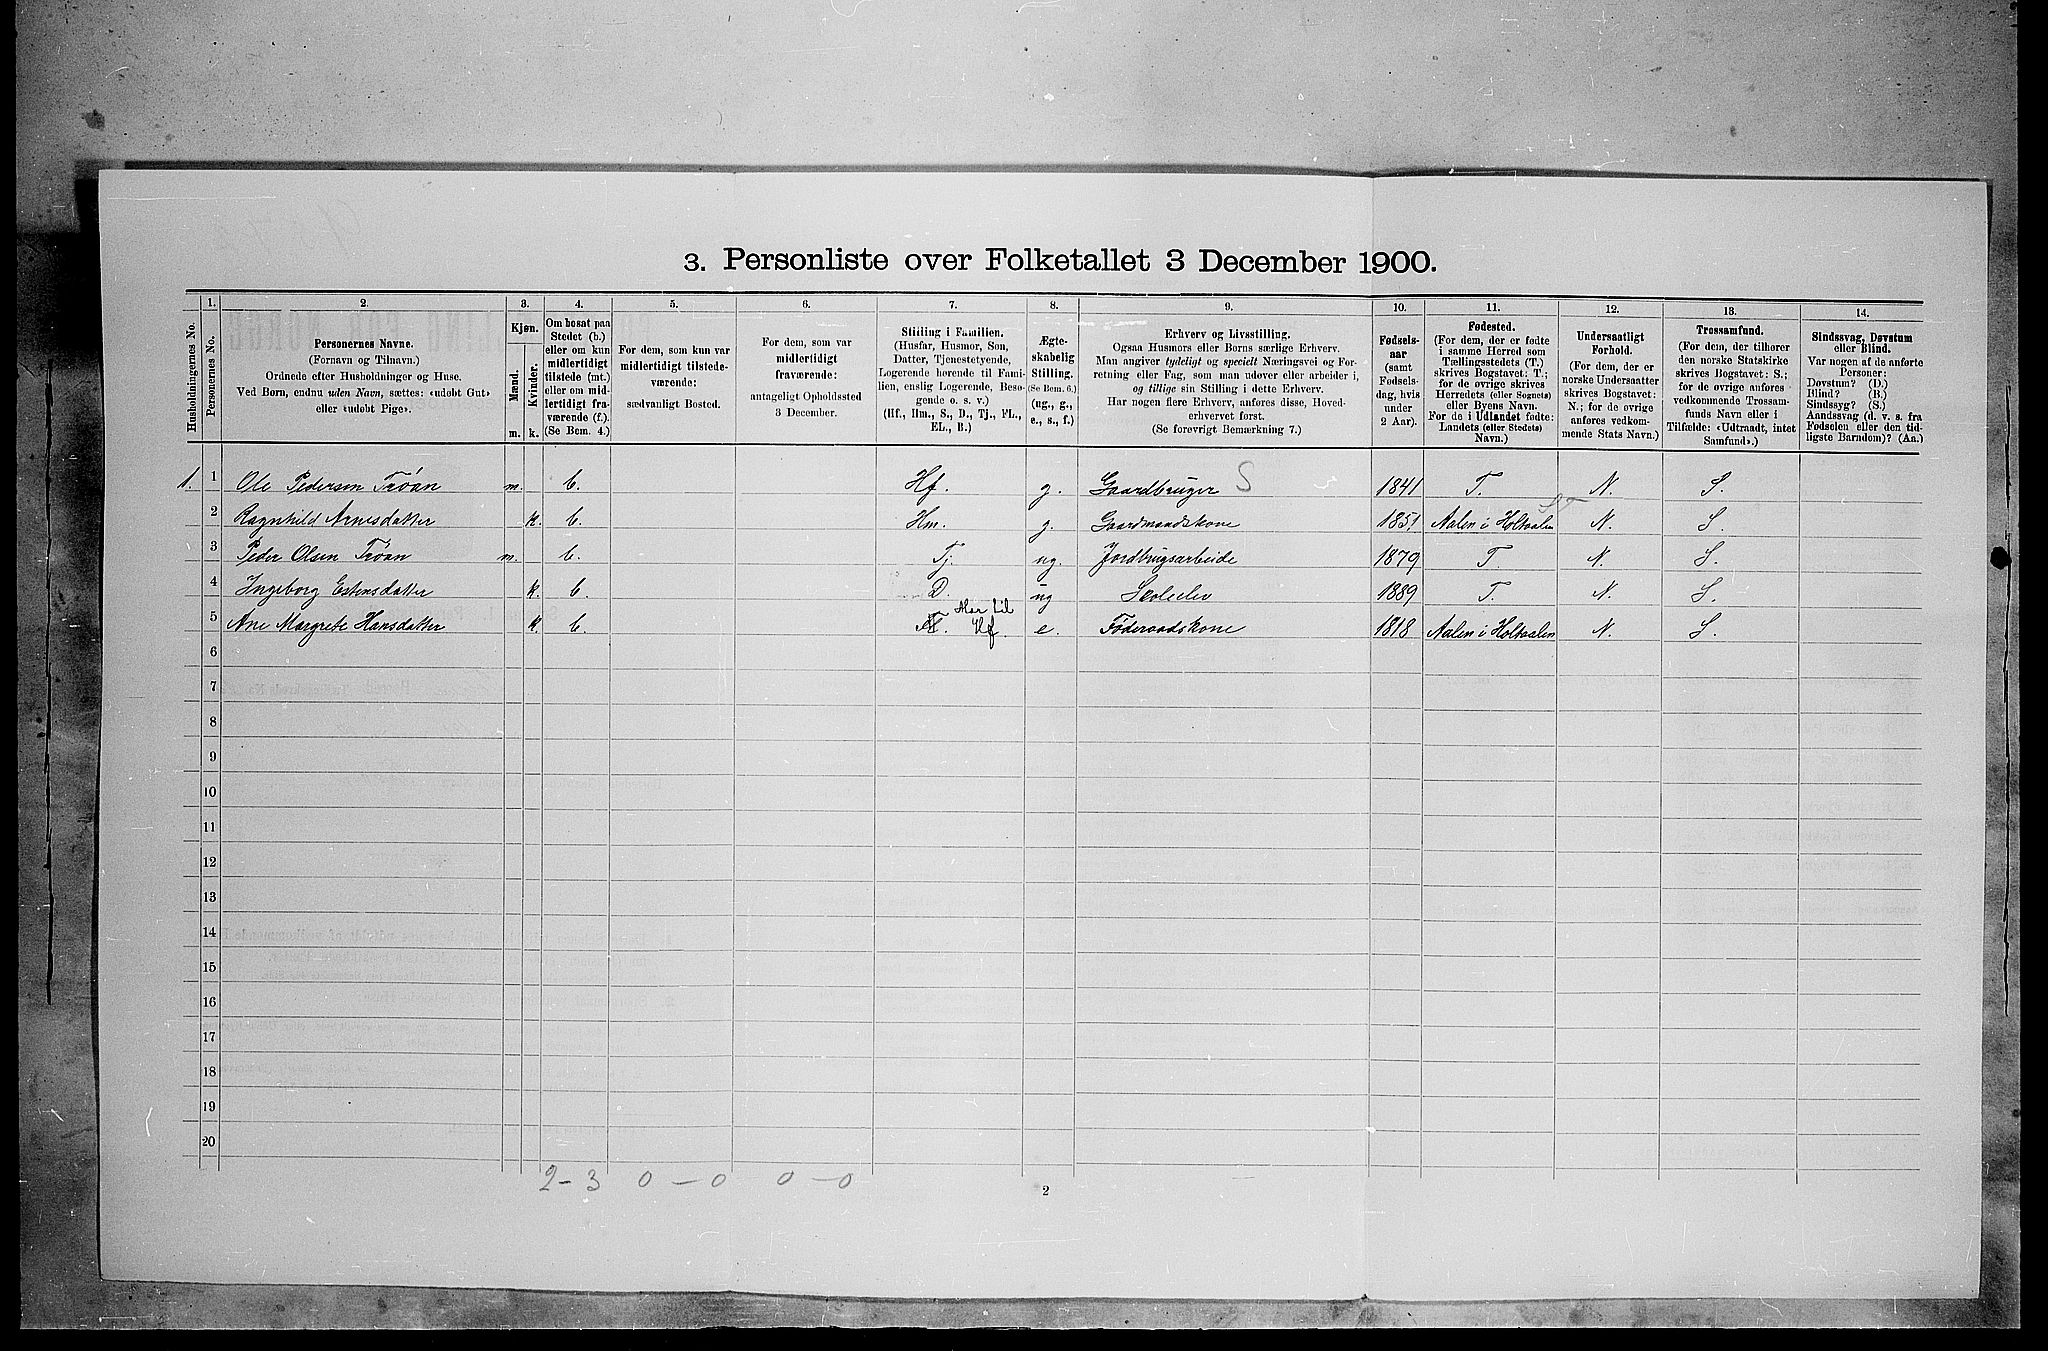 3. Personliste over Folketallet 3 December 1900.
Husholdningernes No.
1.
Personernes No.
2.
Personernes Navne.
(Fornavn og Tilnavn.)
Ordnede efter Husholdninger og Huse.
Ved Børn, endnu uden Navn, sættes: «udøbt Gut»
eller «udøbt Pige».
3.
Kjøn.
Mænd.
Kvinder.
m.
k.
4.
Om bosat paa
Stedet (b.)
eller om kun
midlertidigt
tilstede (mt.)
eller om mid-
lertidigt fra-
værende (f.).
(Se Bem. 4.)
5.
For dem, som kun var
midlertidigt tilstede-
værende:
sædvanligt Bosted.
6.
For dem, som var
midlertidigt
fraværende:
antageligt Opholdssted
3 December.
7.
Stilling i Familien.
(Husfar, Husmor, Søn,
Datter, Tjenestetyende,
Logerende hørende til Fami-
lien, enslig Logerende, Besø-
gende o. s. v.)
(Hf., Hm., S., D., Tj., FL.,
EL., B.)
8.
Ægte-
skabelig
Stilling.
(Se Bem. 6.)
(ug., g.,
e., s., f.)
9.
Erhverv og Livsstilling.
Ogsaa Husmors eller Børns særlige Erhverv.
Man angiver tydeligt og specielt Næringsvei og For-
retning eller Fag, som man udøver eller arbeider i,
og tillige sin Stilling i dette Erhverv.
Har nogen flere Erhverv, anføres disse, Hoved-
erhvervet først.
(Se forøvrigt Bemærkning 7.)
10.
Fødsels-
aar
(samt
Fødsels-
dag, hvis
under
2 Aar).
11.
Fødested.
(For dem, der er fødte
i samme Herred som
Tællingsstedets (T.)
skrives Bogstavet: T.;
for de øvrige skrives
Herredets (eller Sognets)
eller Byens Navn.
For de i Udlandet fødte:
Landets (eller Stedets)
Navn.)
12.
Undersaatligt
Forhold.
(For dem, der er
norske Undersaatter
skrives Bogstavet:
N.; for de øvrige
anføres vedkom-
mende Stats Navn.)
13.
Trossamfund.
(For dem, der tilhører
den norske Statskirke
skrives Bogstavet: S.;
for de øvrige anføres
vedkommende Trossam-
funds Navn eller i
Tilfælde: «Udtraadt, intet
Samfund».)
14.
Sindssvag, Døvstum
eller Blind.
Var nogen af de anførte
Personer:
Døvstum? (D.)
Blind? (B.)
Sindssyg? (S.)
Aandssvag (d. v. s. fra
Fødselen eller den tid-
ligste Barndom)? (Aa.)
1. 1 Ole Pedersen Trøan m. b. Hf. g. Gaardbruger S 1841 T. N. S.
2 Ragnhild Arnesdatter k. b. Hm. g. Gaardmandskone 1851 Aalen i Holtaalen N. S.
3 Peder Olsen Trøan m. b. Tj. ug. Jordbrugsarbeide 1879 T. N. S.
4 Ingeborg Estensdatter k. b. D. ug Skoleelev 1889 T. N. S.
5 Ane Margrete Hansdatter k. b. Mor til Hf. e. Føderaadskone 1818 Aalen i Holtaalen N. S.
6
7
8
9
10
11
12
13
14
15
16
17
18
19
20
2 - 3 0 - 0 0 - 0
2